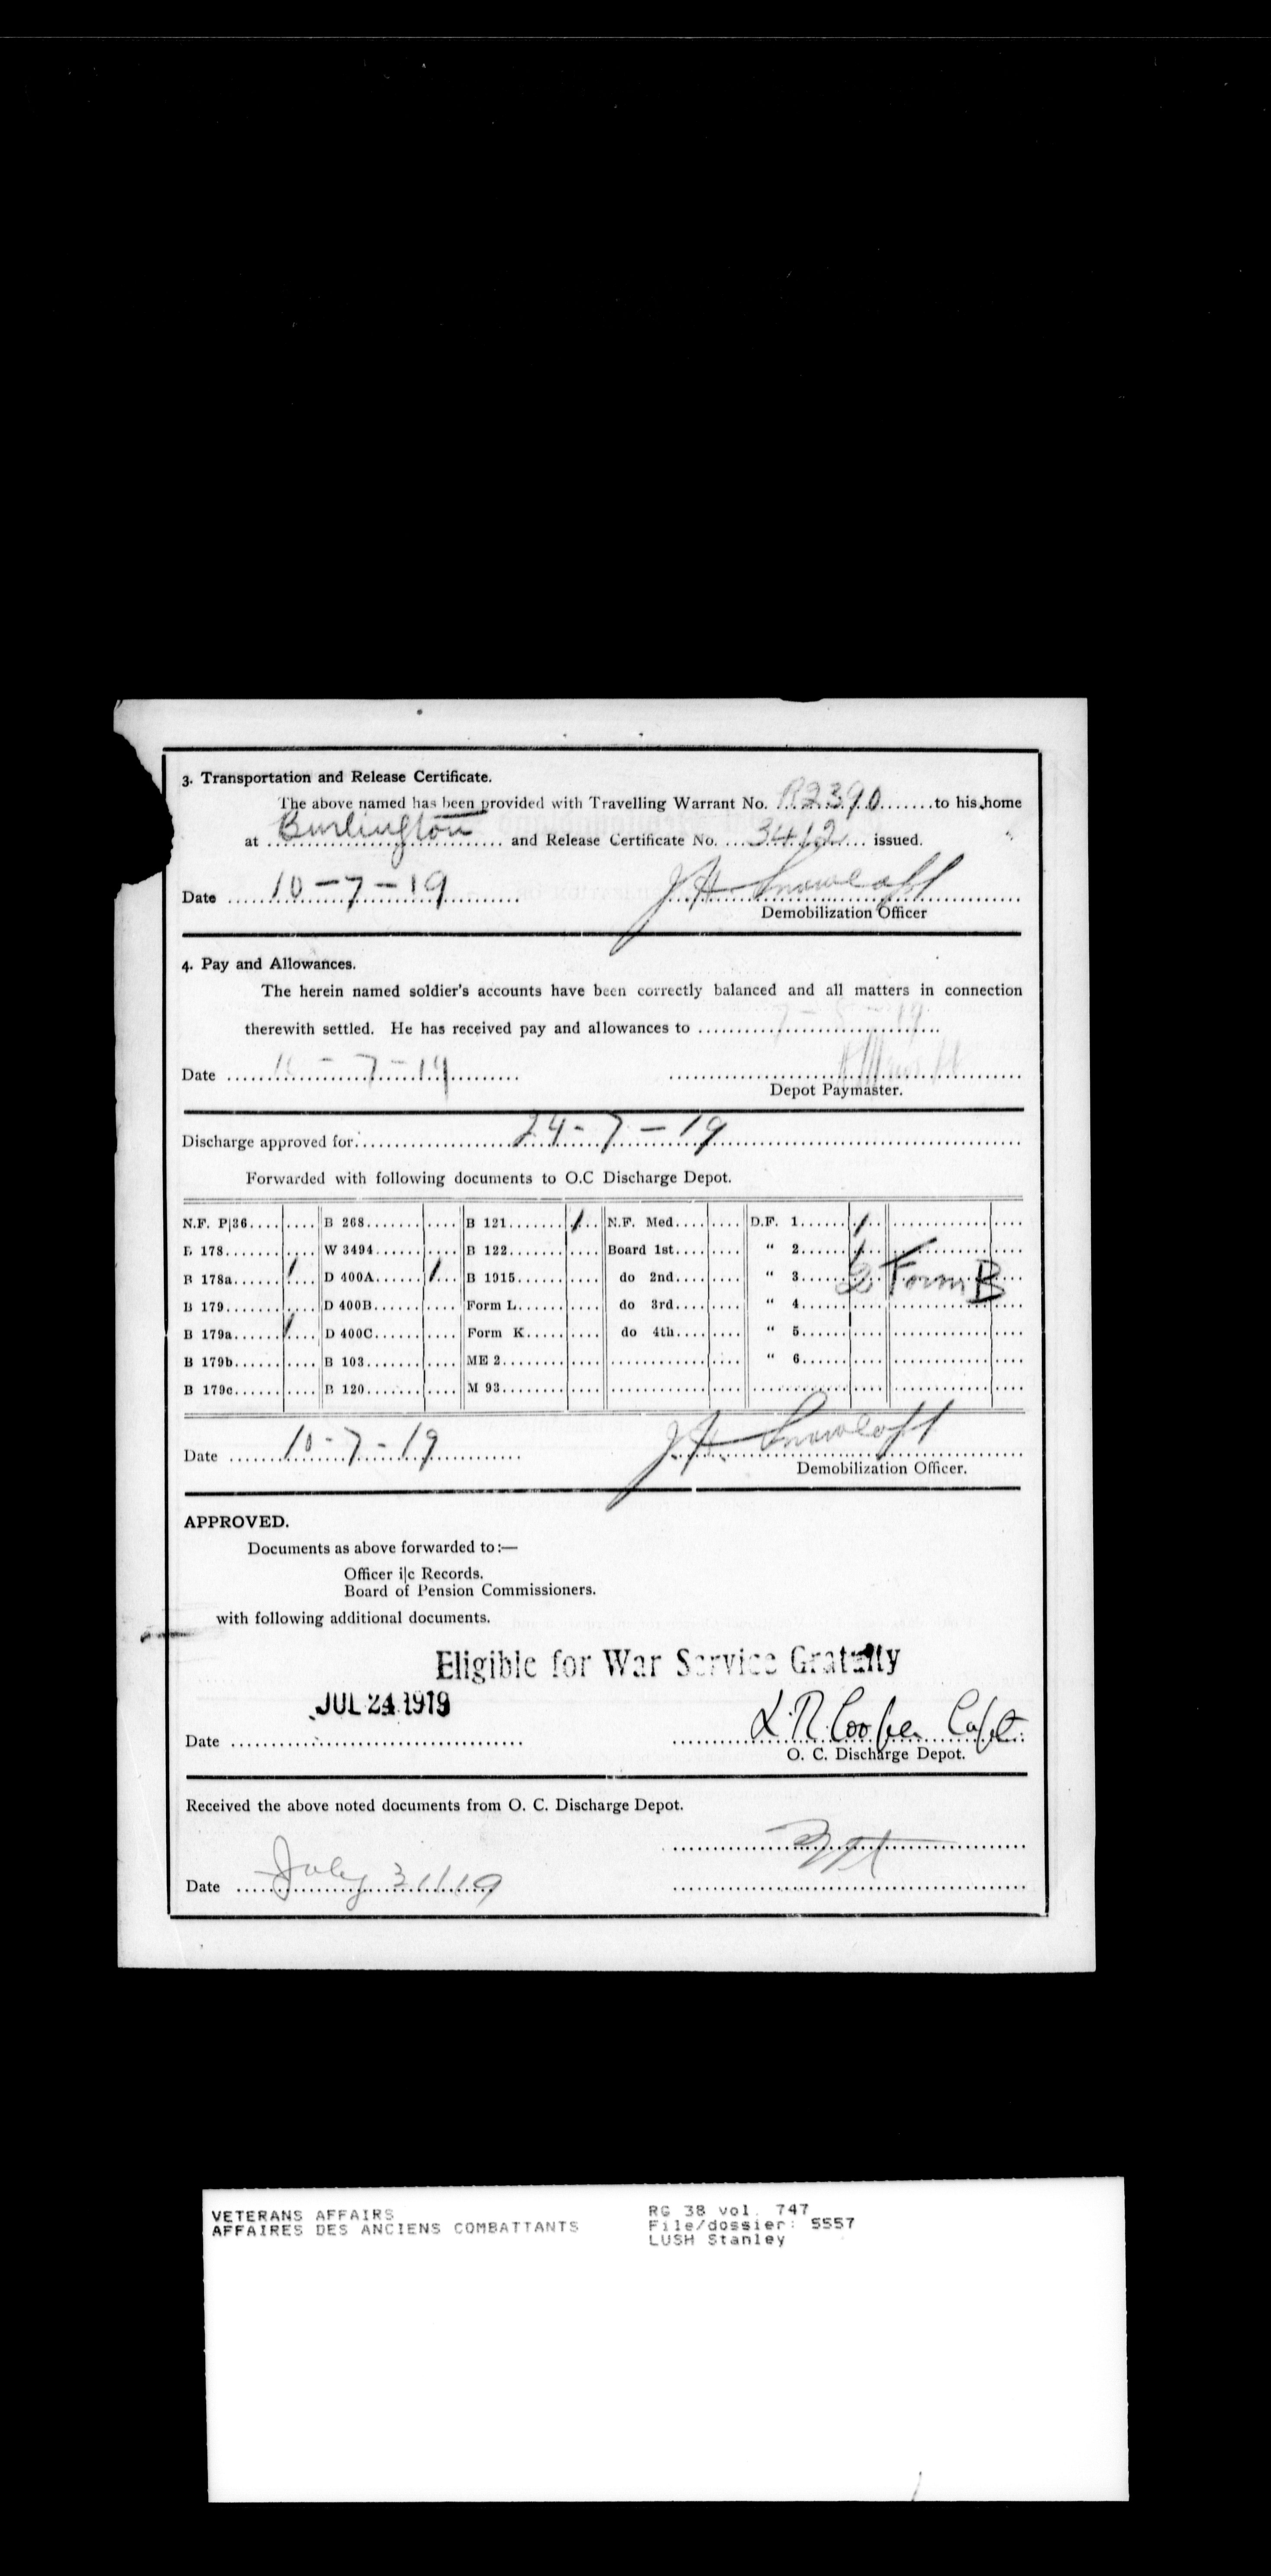 3. Transportation and Release Certificate.
The above named has been provided with Travelling Warrant No. R2390 to his home
at Burlington and Release Certificate No. 3412 issued.
Date 10-7-19 J.H. Snowclaft
Demobilization Officer
4. Pay and Allowances.
The herein named soldier's accounts have been correctly balanced and all matters in connection
therewith settled. He has received pay and allowances to 7-8-19
Date 10-7-19
Depot Paymaster.
Discharge approved for 24-7-19
Forwarded with following documents to O.C Discharge Depot.
N.F. P|36 B 268 B 121 / N.F. Med D.F. 1 /
B 178 W 3494 B 122 Board 1st " 2 /
B 178a / D 400A / B 1915 do 2nd " 3 2 Form B
B 179 D 400B Form L do 3rd " 4
B 179a / D 400C Form K do 4th " 5
B 179b B 103 ME 2 " 6
B 179c B 120 M 93
Date 10-7-19 J.H.
Demobilization Officer.
APPROVED.
Documents as above forwarded to:—
Officer i|c Records.
Board of Pension Commissioners.
with following additional documents.
Eligible for War Service Gratuity
JUL 24 1919
Date L.R. Cooper Capt.
O. C. Discharge Depot.
Received the above noted documents from O. C. Discharge Depot.
Date July 31/19
VETERANS AFFAIRS
AFFAIRES DES ANCIENS COMBATTANTS
RG 38 vol. 747
File/dossier: 5557
LUSH Stanley